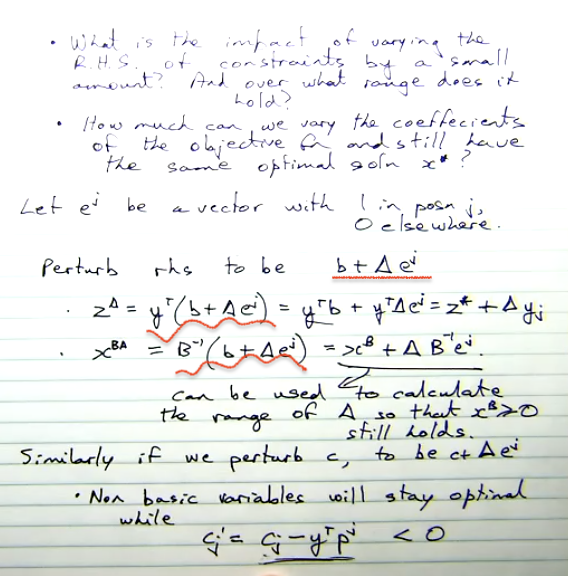 • What is the impact of varying the
R.H.S. of constraints by a small
amount? And over what range does it
hold?
• How much can we vary the coeffecients
of the objective fn and still have
the same optimal soln x* ?
Let eʲ be a vector with 1 in posn j,
0 elsewhere.
Perturb rhs to be b + Δeʲ
· z^Δ = yᵀ(b + Δeʲ) = yᵀb + yᵀΔeʲ = z* + Δyⱼ
· x^BΔ = B⁻¹(b + Δeʲ) = x^B + ΔB⁻¹eʲ.
can be used to calculate
the range of Δ so that x^B ≥ 0
still holds.
Similarly if we perturb c, to be c + Δeʲ
• Non basic variables will stay optimal
while
cⱼ' = cⱼ - yᵀpʲ < 0